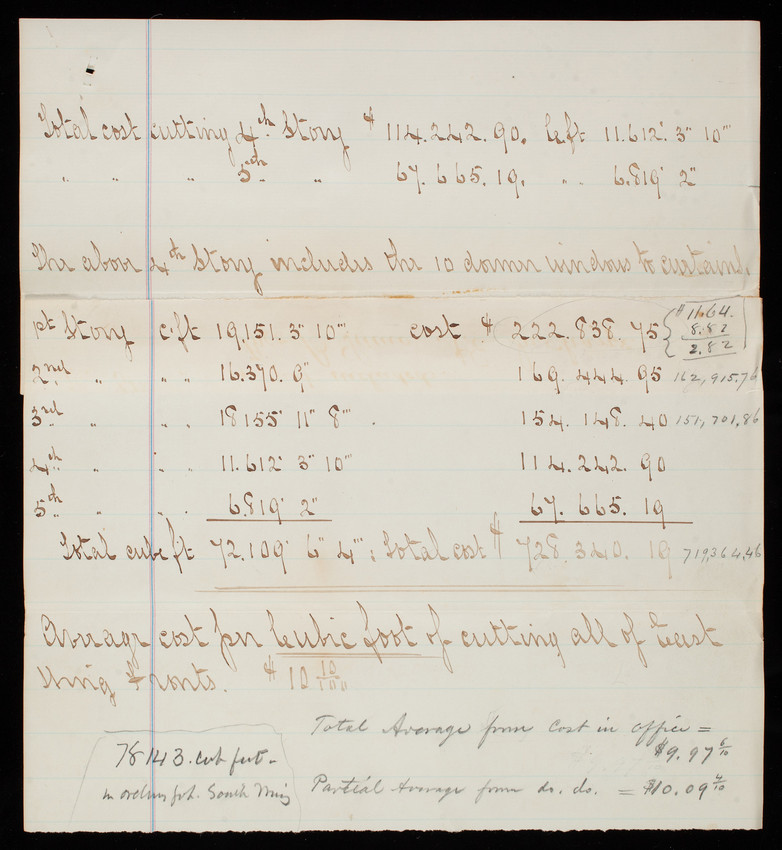 Total cost cutting 4th Story $ 114.242.90. c.ft 11.612' 3" 10'''
" " " 5th " 67.665.19. " . 6.819' 2"
The above 4th Story includes the 10 dormer windows to curtains.
1st Story c.ft 19.151. 3" 10''' cost $ 222.838.75 { $1664.
8.82
2.82
2nd " " " 16.370. 9" 169.444.95 162,915.76
3rd " " . 18155' 11" 8''' . 154.148.40 151,701.86
4th " " . 11.612' 3" 10''' 114.242.90
5th " " . 6.819' 2" 67.665.19
Total cube ft 72.109' 6" 4''' : Total cost $ 728.340.19 719,364.46
Average cost per Cubic foot of cutting all of East
Wing Fronts. $ 10 10/100
Total Average from Cost in office =
$9.97 6/10
78143. cub feet -
Partial Average from do. do. = $10.09 4/10
South Wing